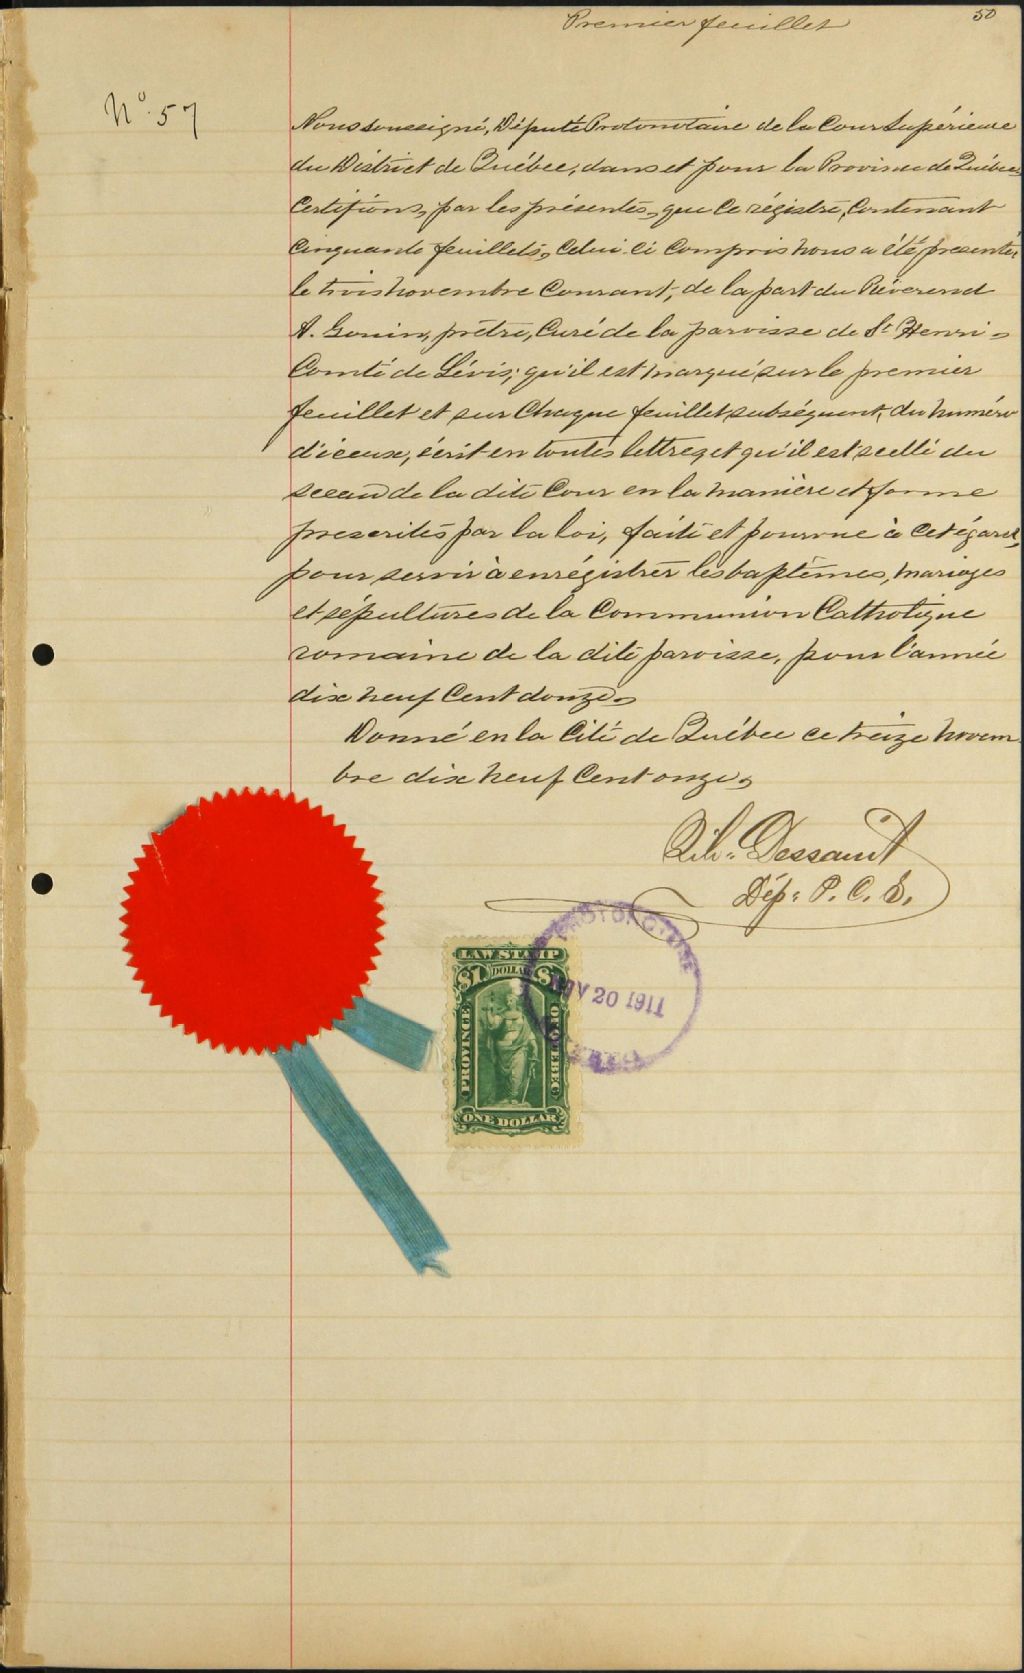 Premier feuillet
50
No. 57
Nous soussigné, Député Protonotaire de la Cour Supérieure
du District de Québec, dans et pour la Province de Québec
Certifions, par les présentes, que ce régistre, contenant
cinquante feuillets, celui-ci compris nous a été presenté,
le trois novembre courant, de la part du Révérend
A. Gouin, prêtre, Curé de la paroisse de St Henri-
Comté de Lévis; qu'il est marqué sur le premier
feuillet et sur chaque feuillet subséquent, du numéro
d'iceux, écrit en toutes lettres, et qu'il est scellé du
sceau de la dite Cour en la manière et forme
prescrites par la loi, faite et pourvue à cet égard,
pour servir à enrégistrer les baptêmes, mariages
et sépultures de la Communion Catholique
romaine de la dite paroisse, pour l'année
dix neuf cent douze.
Donné en la Cité de Québec ce treize novem
bre dix neuf cent onze,
Dessault
Dép: P. C. S.
LAW STAMP
$1 DOLLAR $1
PROVINCE OF QUEBEC
ONE DOLLAR
NOV 20 1911